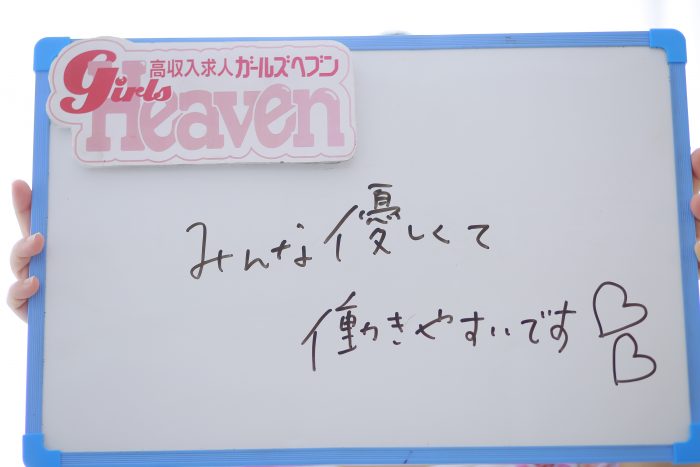 高収入求人 ガールズヘブン
Girls
Heaven
みんな優しくて
働きやすいです♡♡